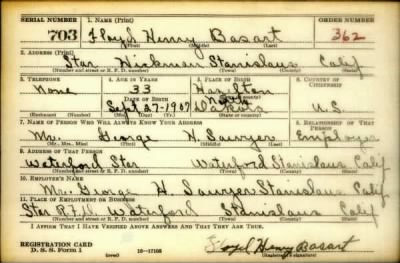 SERIAL NUMBER 1. NAME (Print) ORDER NUMBER
703 Floyd Henry Basart 362
(First) (Middle) (Last)
2. ADDRESS (Print)
Star Hickman Stanislaus Calif
(Number and street or R. F. D. number) (Town) (County) (State)
3. TELEPHONE 4. AGE IN YEARS 5. PLACE OF BIRTH 6. COUNTRY OF CITIZENSHIP
None 33 Hazelton
DATE OF BIRTH (Town or county)
Sept 27-1907 North Dakota U.S.
(Exchange) (Number) (Mo.) (Day) (Yr.) (State or country)
7. NAME OF PERSON WHO WILL ALWAYS KNOW YOUR ADDRESS 8. RELATIONSHIP OF THAT PERSON
Mr. George H. Sawyer Employer
(Mr., Mrs., Miss) (First) (Middle) (Last)
9. ADDRESS OF THAT PERSON
Waterford Star Waterford Stanislaus Calif
(Number and street or R. F. D. number) (Town) (County) (State)
10. EMPLOYER'S NAME
Mr. George H. Sawyer Stanislaus Calif
11. PLACE OF EMPLOYMENT OR BUSINESS
Star Waterford Stanislaus Calif
(Number and street or R. F. D. number) (Town) (County) (State)
I AFFIRM THAT I HAVE VERIFIED ABOVE ANSWERS AND THAT THEY ARE TRUE.
REGISTRATION CARD
D. S. S. Form 1 (over) Floyd Henry Basart
(Registrant's signature)